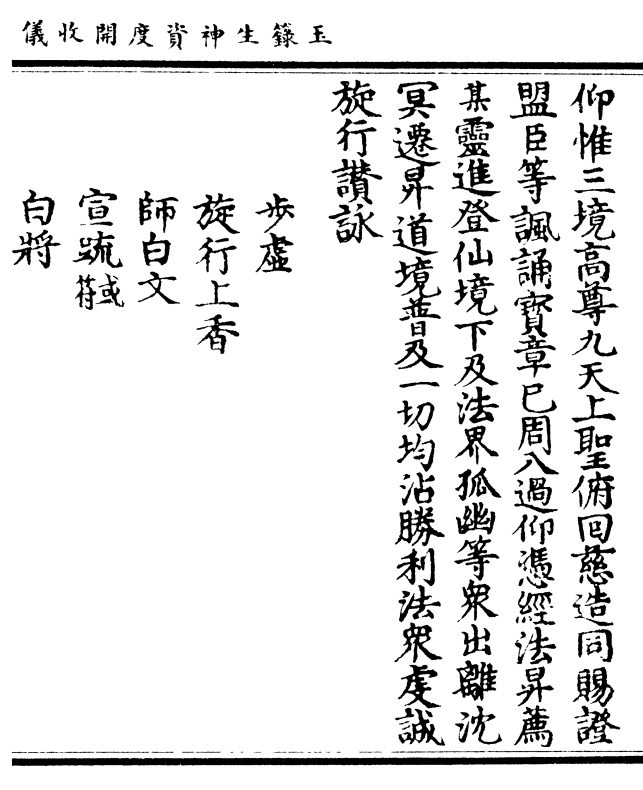 玉籙生神資度開收儀
仰惟三境高尊九天上聖俯回慈造同賜證
盟臣等諷誦寶章已周八過仰憑經法昇薦
某靈進登仙境下及法界孤幽等衆出離沈
冥遷昇道境普及一切均沾勝利法衆虔誠
旋行讃詠
步虛
旋行上香
師白文
宣䟽或符
白將